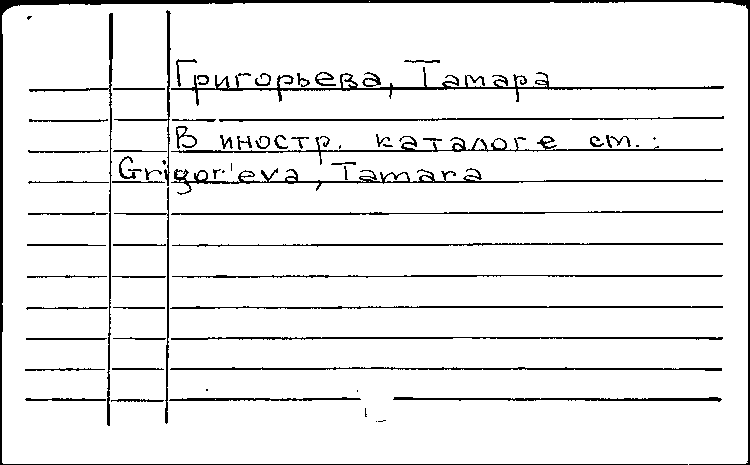 Григорьева, Тамара
В иностр. каталоге см.:
Grigor'eva, Tamara